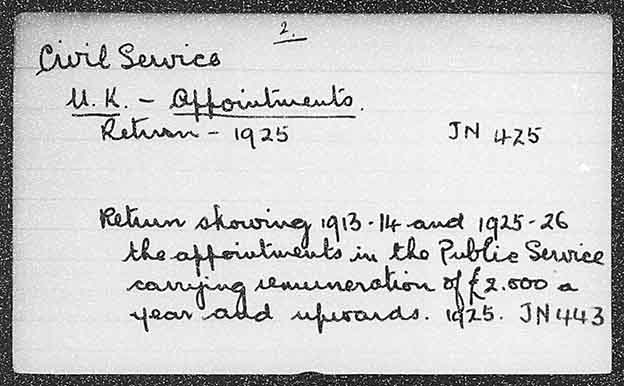 2.
Civil Service
U.K. - Appointments.
Return - 1925 JN 425
Return showing 1913-14 and 1925-26
the appointments in the Public Service
carrying remuneration of £2.000 a
year and upwards. 1925. JN 443